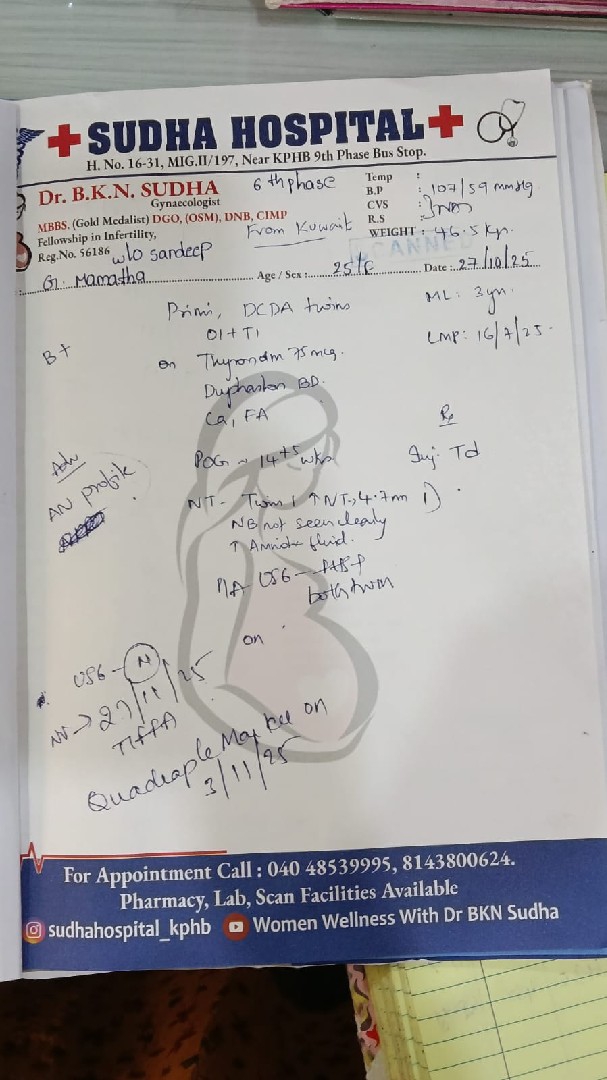 SUDHA HOSPITAL
H. No. 16-31, MIG.II/197, Near KPHB 9th Phase Bus Stop.
Dr. B.K.N. SUDHA
Gynaecologist
MBBS. (Gold Medalist) DGO, (OSM), DNB, CIMP
Fellowship in Infertility,
Reg.No. 56186
6th phase
From Kuwait
w/o sandeep
Temp :
B.P : 107/59 mmHg
CVS :
R.S :
WEIGHT : 46.5 kg.
G. Mamatha Age / Sex : 25/F Date : 27/10/25
Primi, DCDA twins
OI + TI
ML: 3 yr.
LMP: 16/7/25.
B+
on Thyronorm 75 mcg.
Duphaston BD.
Ca, FA
Rx
Adv
AN profile
POG ~ 14+5 wks
Inj. Td
NT - Twin 1 ↑NT → 4.7 mm
NB not seen clearly
↑ Amniotic fluid.
USG -
both twin
on
USG - N
27/11/25
TIFFA
Quadraple Marker on
3/11/25
For Appointment Call : 040 48539995, 8143800624.
Pharmacy, Lab, Scan Facilities Available
sudhahospital_kphb Women Wellness With Dr BKN Sudha